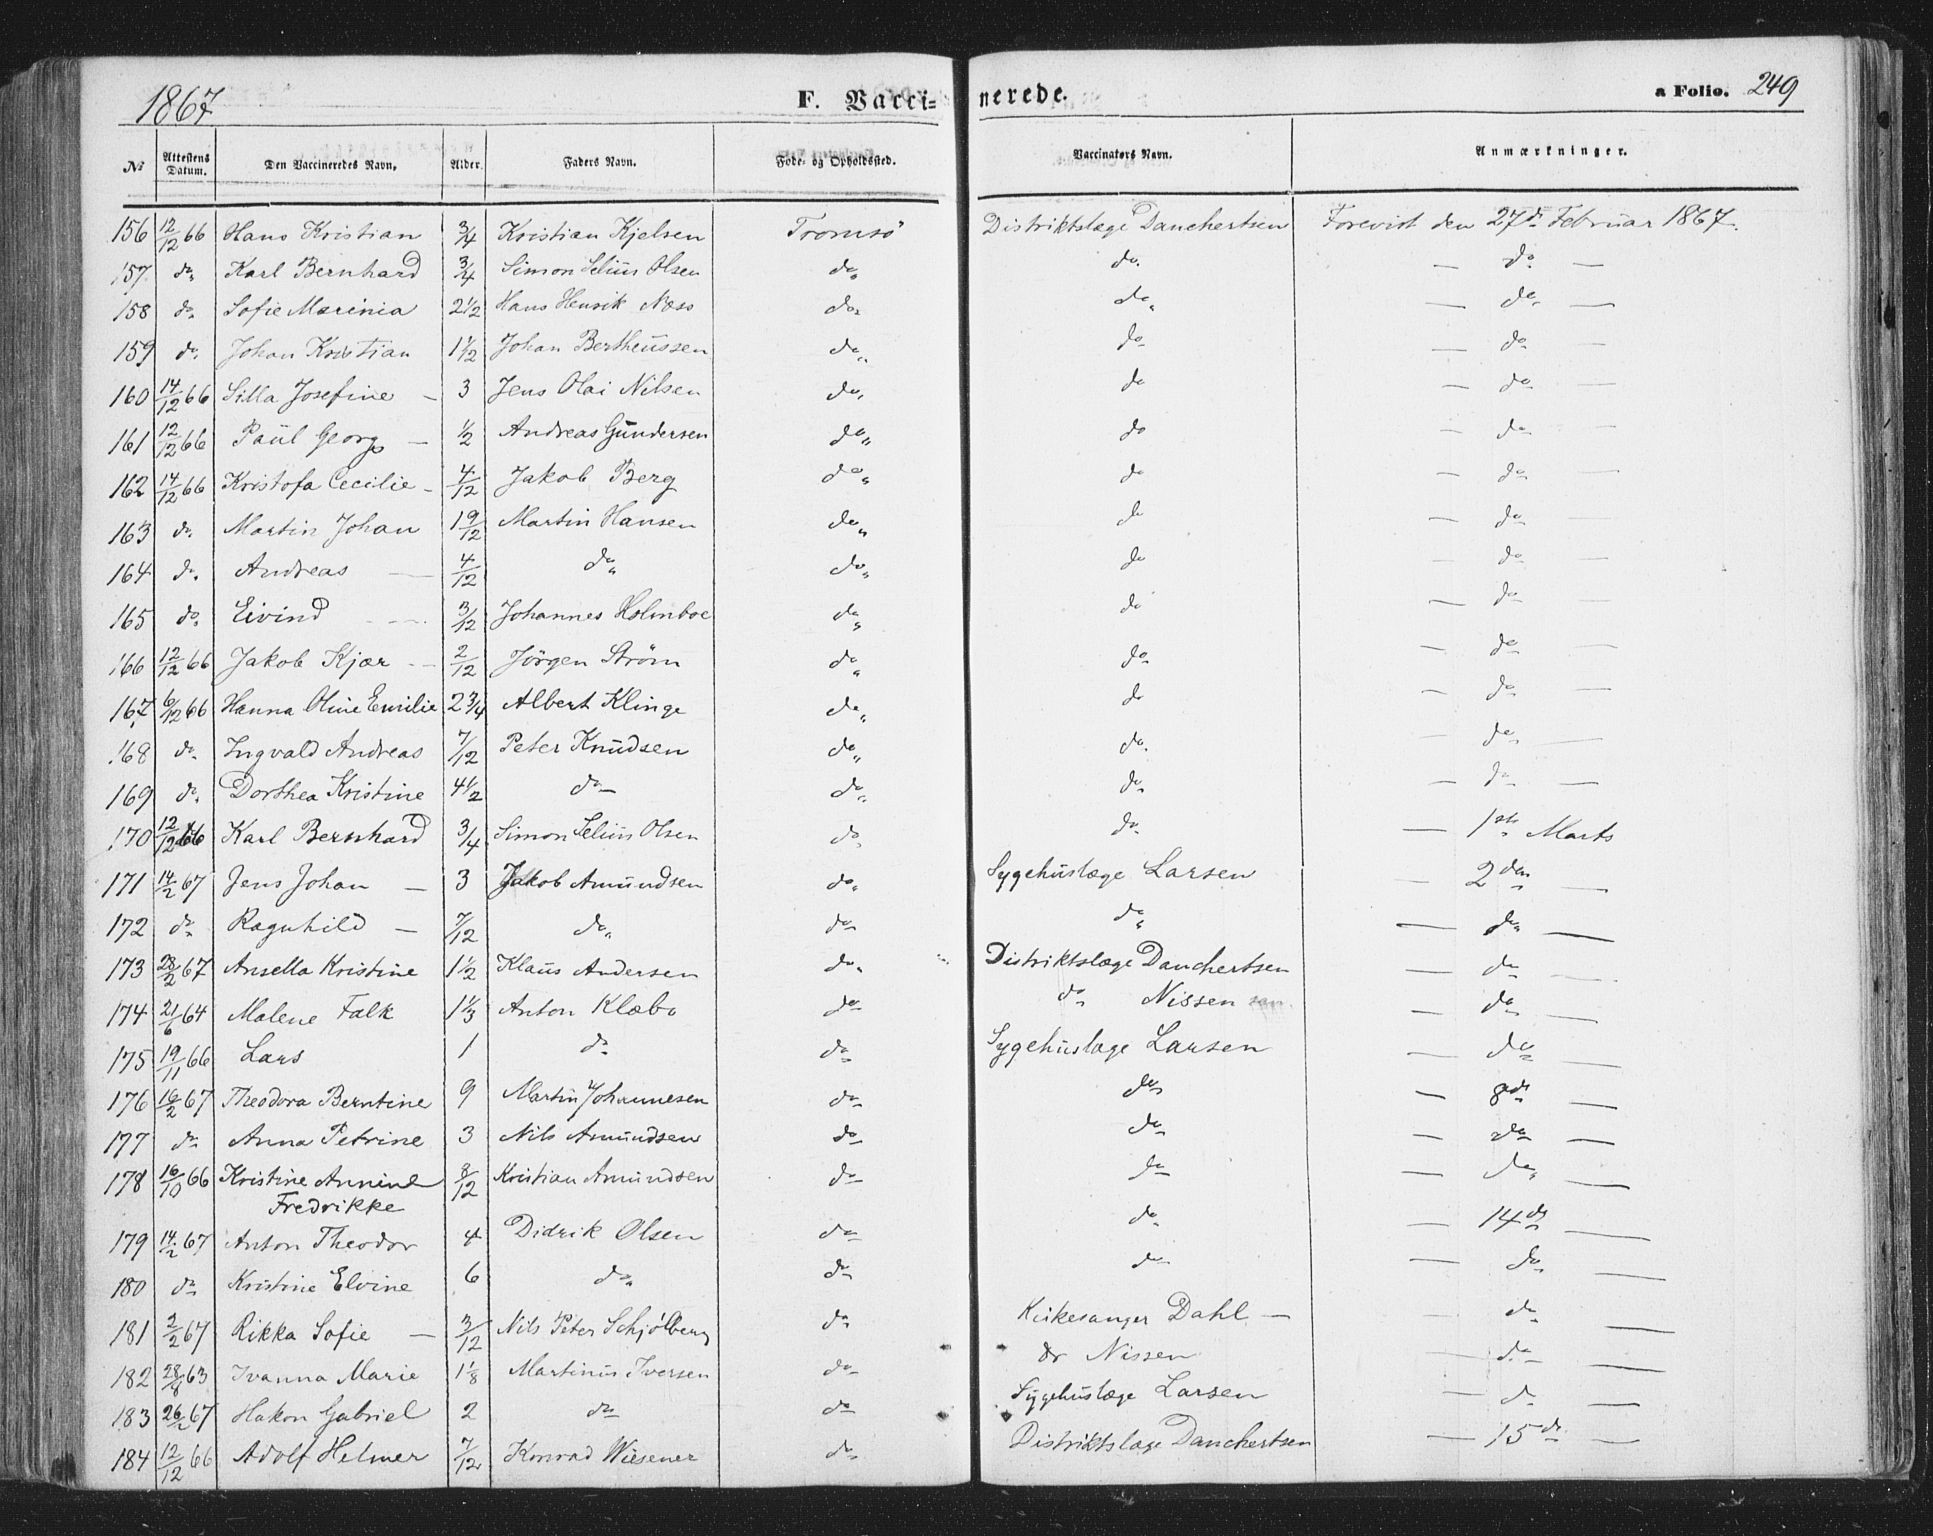 1867 F. Vacci- nerede. a Folio. 249
№ Attestens Datum. Den Vaccineredes Navn. Alder. Faders Navn. Føde- og Opholdssted. Vaccinators Navn. Anmærkninger.
156 12/12 66 Hans Kristian 3/4 Kristian Kjelsen Tromsø Distriktslæge Danchertsen Forevist den 27de Februar 1867.
157 do Karl Bernhard 3/4 Simon Selius Olsen do do. — do —
158 do Sofie Marinia 2 1/2 Hans Henrik Næss do do — do —
159 do Johan Kristian 1 1/2 Johan Bertheussen do do — do —
160 14/12 66 Silla Josefine — 3 Jens Olai Nilsen do do — do —
161 12/12 66 Paul Georg — 1/2 Andreas Gundersen do do — do —
162 14/12 66 Kristofa Cecilie - 4/12 Jakob Berg do do — do —
163 do Martin Johan 1 9/12 Martin Hansen do do — do —
164 do Andreas — 4/12 do do do — do —
165 do Eivind — 3/12 Johannes Holmboe do do — do —
166 12/12 66 Jakob Kjær — 2/12 Jörgen Strøm do do — do —
167 6/12 66 Hanna Oline Emilie 2 3/4 Albert Klinge do do — do —
168 do Ingvald Andreas 7/12 Peter Knudsen do do. — do —
169 do Dorthea Kristine 4 1/2 do do do — do —
170 12/12 66 Karl Bernhard 3/4 Simon Selius Olsen do do — 1ste Marts
171 14/2 67 Jens Johan — 3 Jakob Amundsen do Sygehuslæge Larsen — 2den —
172 do Ragnhild — 7/12 do do do — do —
173 28/2 67 Ansella Kristine 1 1/2 Klaus Andersen do Distriktslæge Danchertsen — do —
174 21/6 64 Malene Falk 1 1/3 Anton Klæbo do do Nissen sen. — do —
175 19/11 66 Lars 1 do do Sygehuslæge Larsen — do —
176 16/2 67 Theodora Berntine 9 Martin Johannesen do do — 8de —
177 do Anna Petrine 3 Nils Amundsen do do — do —
178 16/10 66 Kristine Annine 8/12 Kristian Amundsen do do — do —
Fredrikke
179 14/2 67 Anton Theodor 4 Didrik Olsen do do — 14de —
180 do Kristine Elvine 6 do do do — do —
181 2/2 67 Rikka Sofie — 3/12 Nils Peter Schjølberg do Kirkesanger Dahl — — do —
182 28/8 63 Ivanna Marie 1 1/8 Martinus Iversen do Dr Nissen — do —
183 26/2 67 Hakon Gabriel 2 do do Sygehuslæge Larsen — do —
184 12/12 66 Adolf Helmer 7/12 Konrad Wiesener do Distriktslæge Danchertsen — 15de —